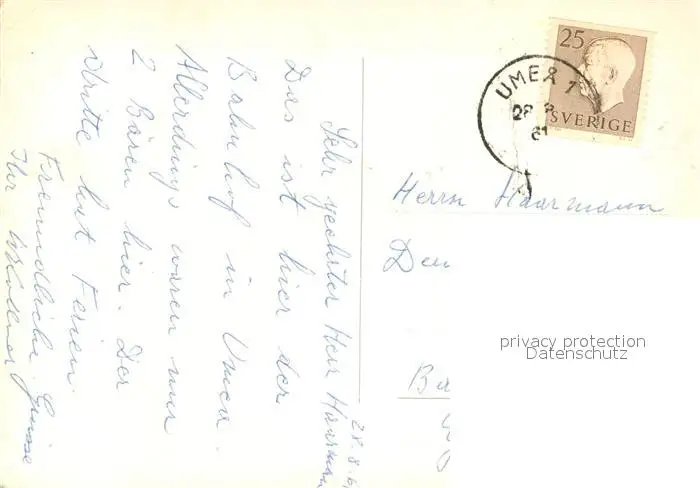 28.8.6
Sehr geehrter Herr Haarmann
Das ist hier der
Bahnhof in Umea.
Allerdings waren nur
2 Bären hier. Der
dritte hat Ferien.
Freundliche Grüsse
Ihr
25
SVERIGE
UMEÅ 1
28 8
61
Herrn Haarmann
privacy protection
Datenschutz